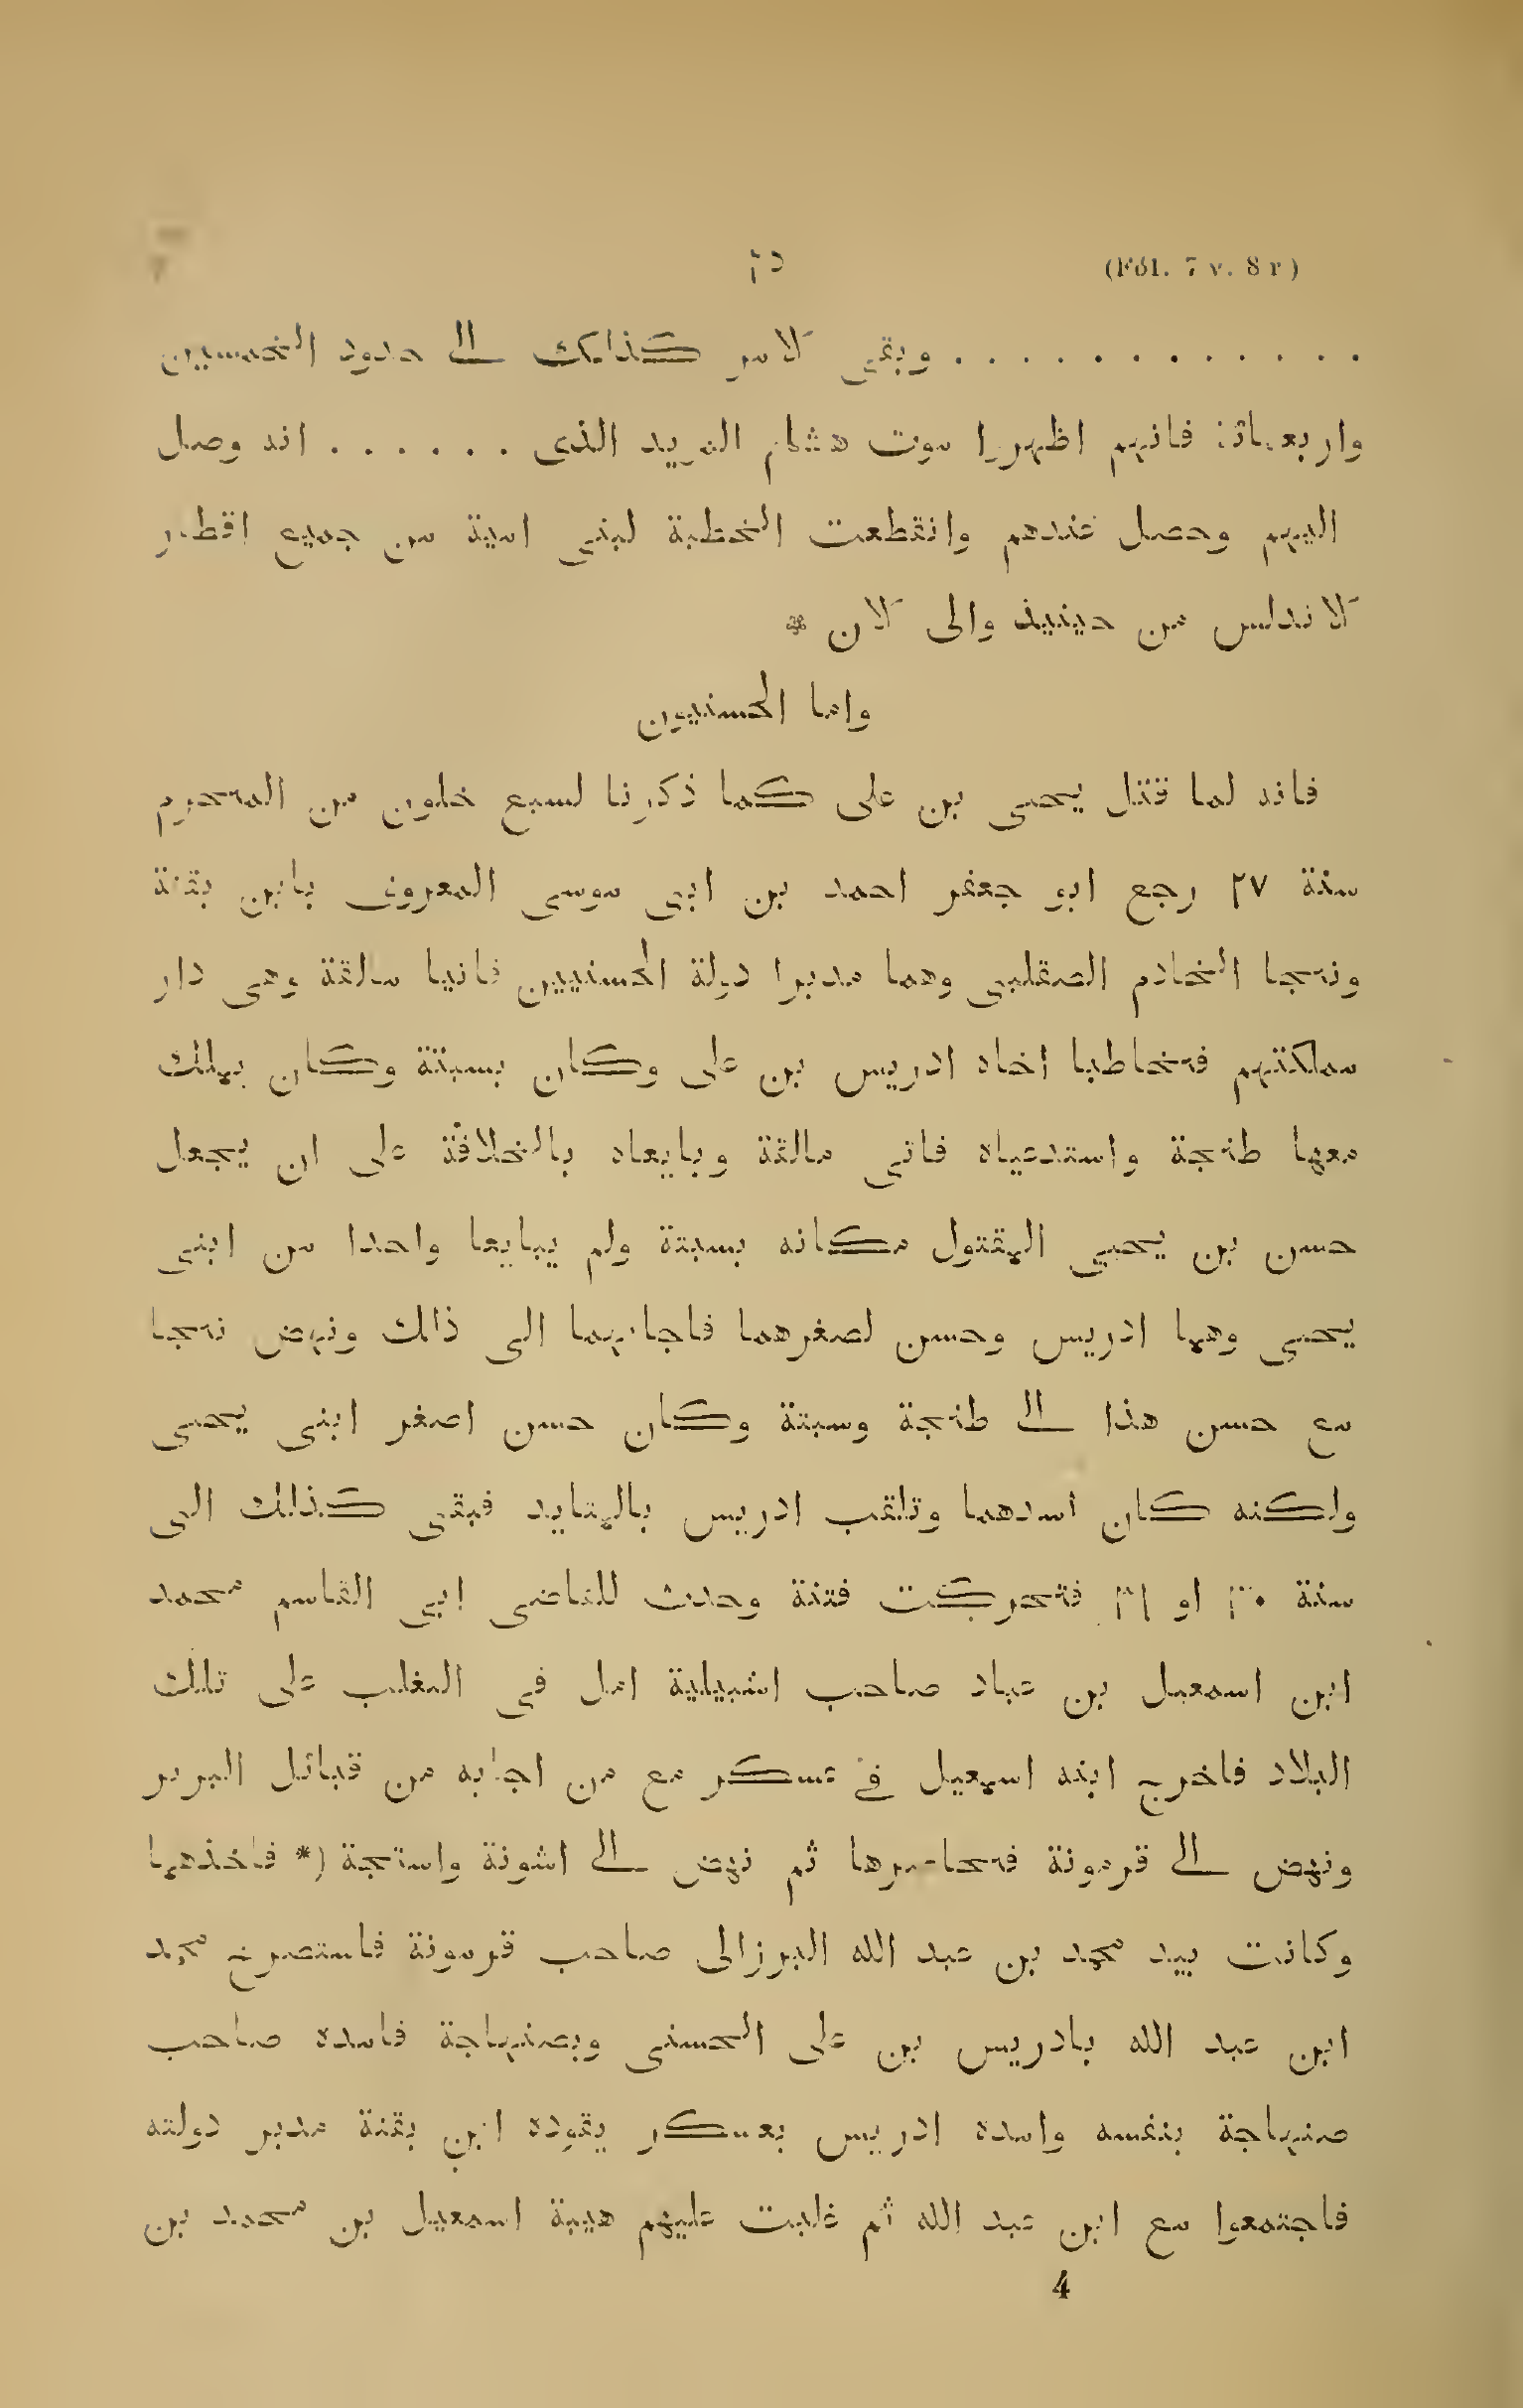 (Fol. 7 v. 8 r) ٢٥
. . . . . . . . . . . . وبقى الامر كذلك الى حدود الخمسين
واربعماية فانهم اظهروا موت هشام المويد الذى . . . . . . انه وصل
اليهم وحصل عندهم وانقطعت الخطبة لبنى امية من جميع اقطار
الاندلس من حينيذ والى الان *
واما الحسنيون
فانه لما قتل يحيى بن على كما ذكرنا لسبع خلون من المحرم
سنة ٢٧ رجع ابو جعفر احمد بن ابى موسى المعروف بابن بقنة
ونجا الخادم الصقلبى وهما مدبرا دولة الحسنيين فاتيا مالقة وهى دار
مملكتهم فخاطبا اخاه ادريس بن على وكان بسبتة وكان يملك
معها طنجة واستدعياه فاتى مالقة وبايعاه بالخلافة على ان يجعل
حسن بن يحيى المقتول مكانه بسبتة ولم يبايعا واحدا من ابنى
يحيى وهما ادريس وحسن لصغرهما فاجابهما الى ذلك ونهض نجا
مع حسن هذا الى طنجة وسبتة وكان حسن اصغر ابنى يحيى
ولكنه كان اسدهما وتلقب ادريس بالمتايد فبقى كذلك الى
سنة ٣٠ او ٣١ فتحركت فتنة وحدث للقاضى ابى القاسم محمد
ابن اسمعيل بن عباد صاحب اشبيلية امل فى التغلب على تلك
البلاد فاخرج ابنه اسمعيل فى عسكر مع من اجابه من قبائل البربر
ونهض الى قرمونة فحاصرها ثم نهض الى اشونة واستجة (* فاخذهما
وكانت بيد محمد بن عبد الله البرزالى صاحب قرمونة فاستصرخ محمد
ابن عبد الله بادريس بن على الحسنى وبصنهاجة فامده صاحب
صنهاجة بنفسه وامده ادريس بعسكر يقوده ابن بقنة مدبر دولته
فاجتمعوا مع ابن عبد الله ثم غلبت عليهم هيبة اسمعيل بن محمد بن
4